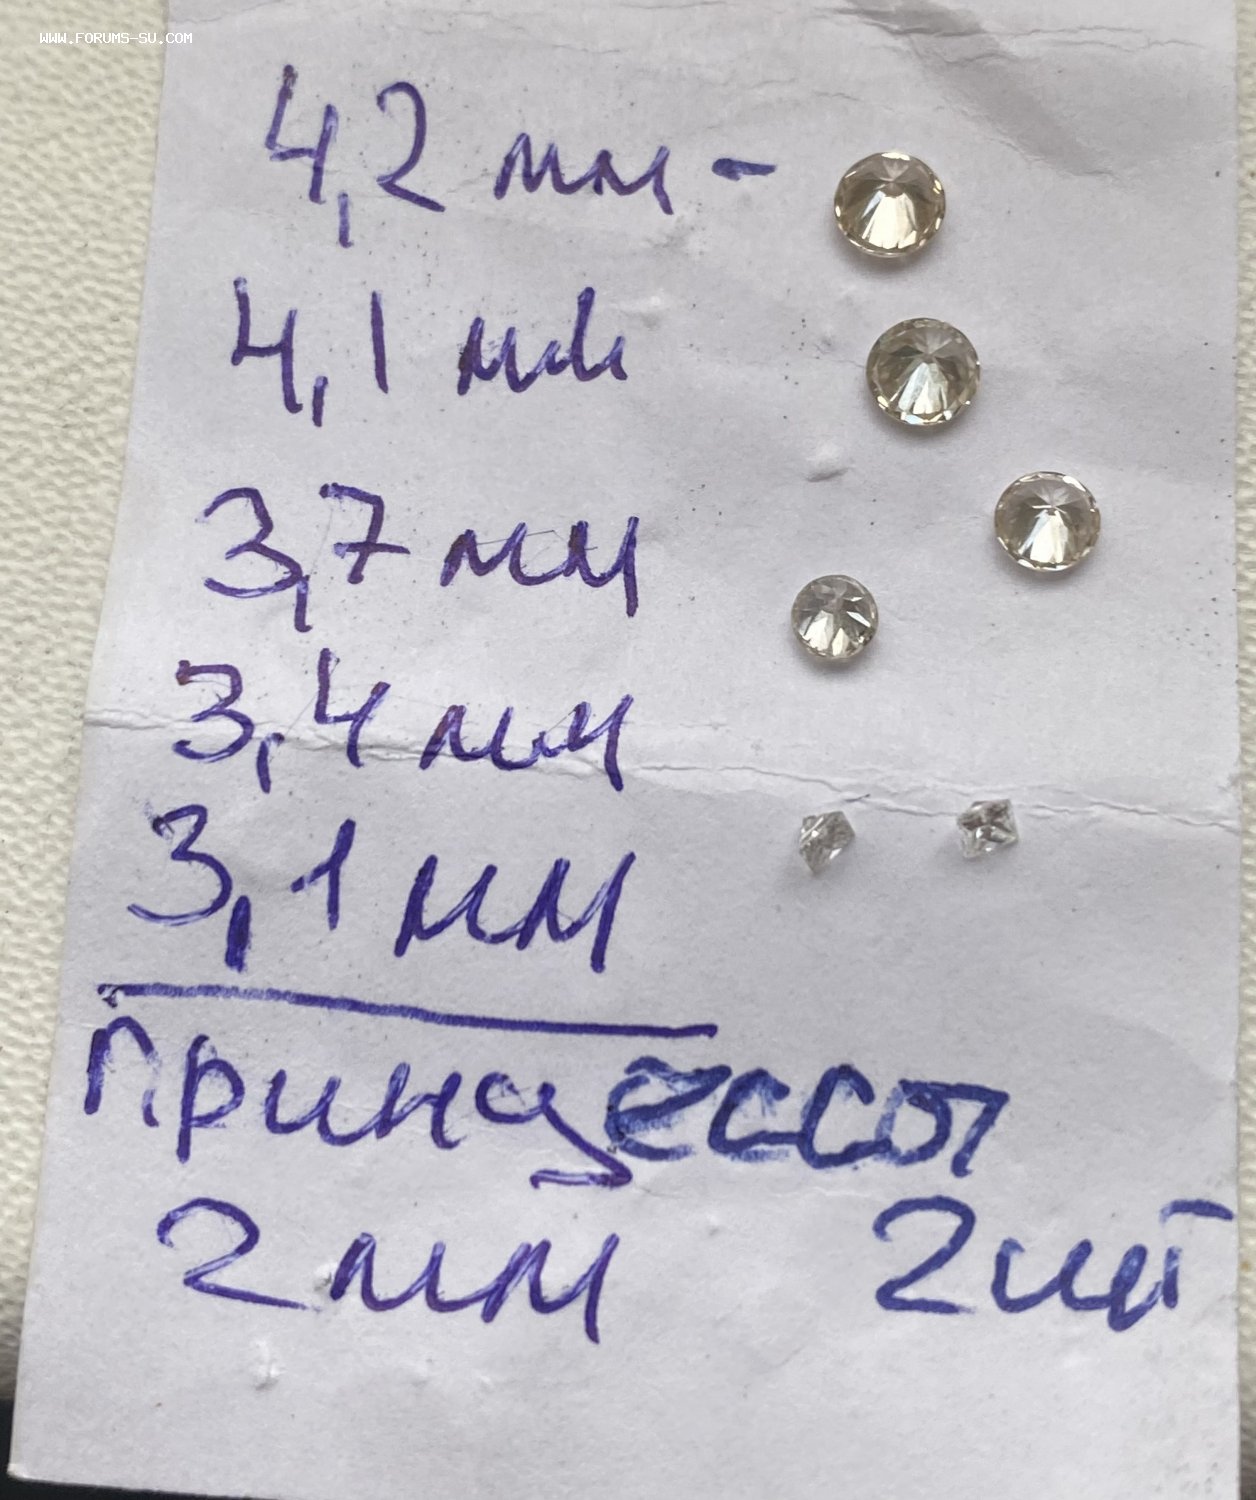 WWW.FORUMS-SU.COM
4,2 мм -
4,1 мм
3,7 мм
3,4 мм
3,1 мм
Принцессы
2 мм 2шт